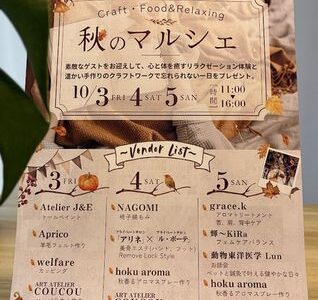 Craft・Food&Relaxing
秋のマルシェ
素敵なゲストをお迎えして、心と体を癒すリラクゼーション体験と
温かい手作りのクラフトワークで忘れられない一日をプレゼント。
10/3 FRI 4 SAT 5 SUN 時間 11:00~16:00
~Vendor List~
3 FRI
Atelier J&E
トールペイント
Aprico
羊毛フェルト作り
welfare
カッピング
ART ATELIER
COUCOU
4 SAT
NAGOMI
椅子揉もみ
プライベートサロン プライベートサロン
「アリネ」×「ル・ポーテ」
美骨エステ(ハンド、フット)
Remove Lock Style
hoku aroma
秋香るアロマスプレー作り
ART ATELIER
COUCOU
5 SUN
grace.k
アロマトリートメント
首、肩、背中ケア
輝~KiRa
フェムケアバランス
動物東洋医学 Lun
お話会
ペットと鍼灸で叶える健やかな日々
hoku aroma
秋香るアロマスプレー作り